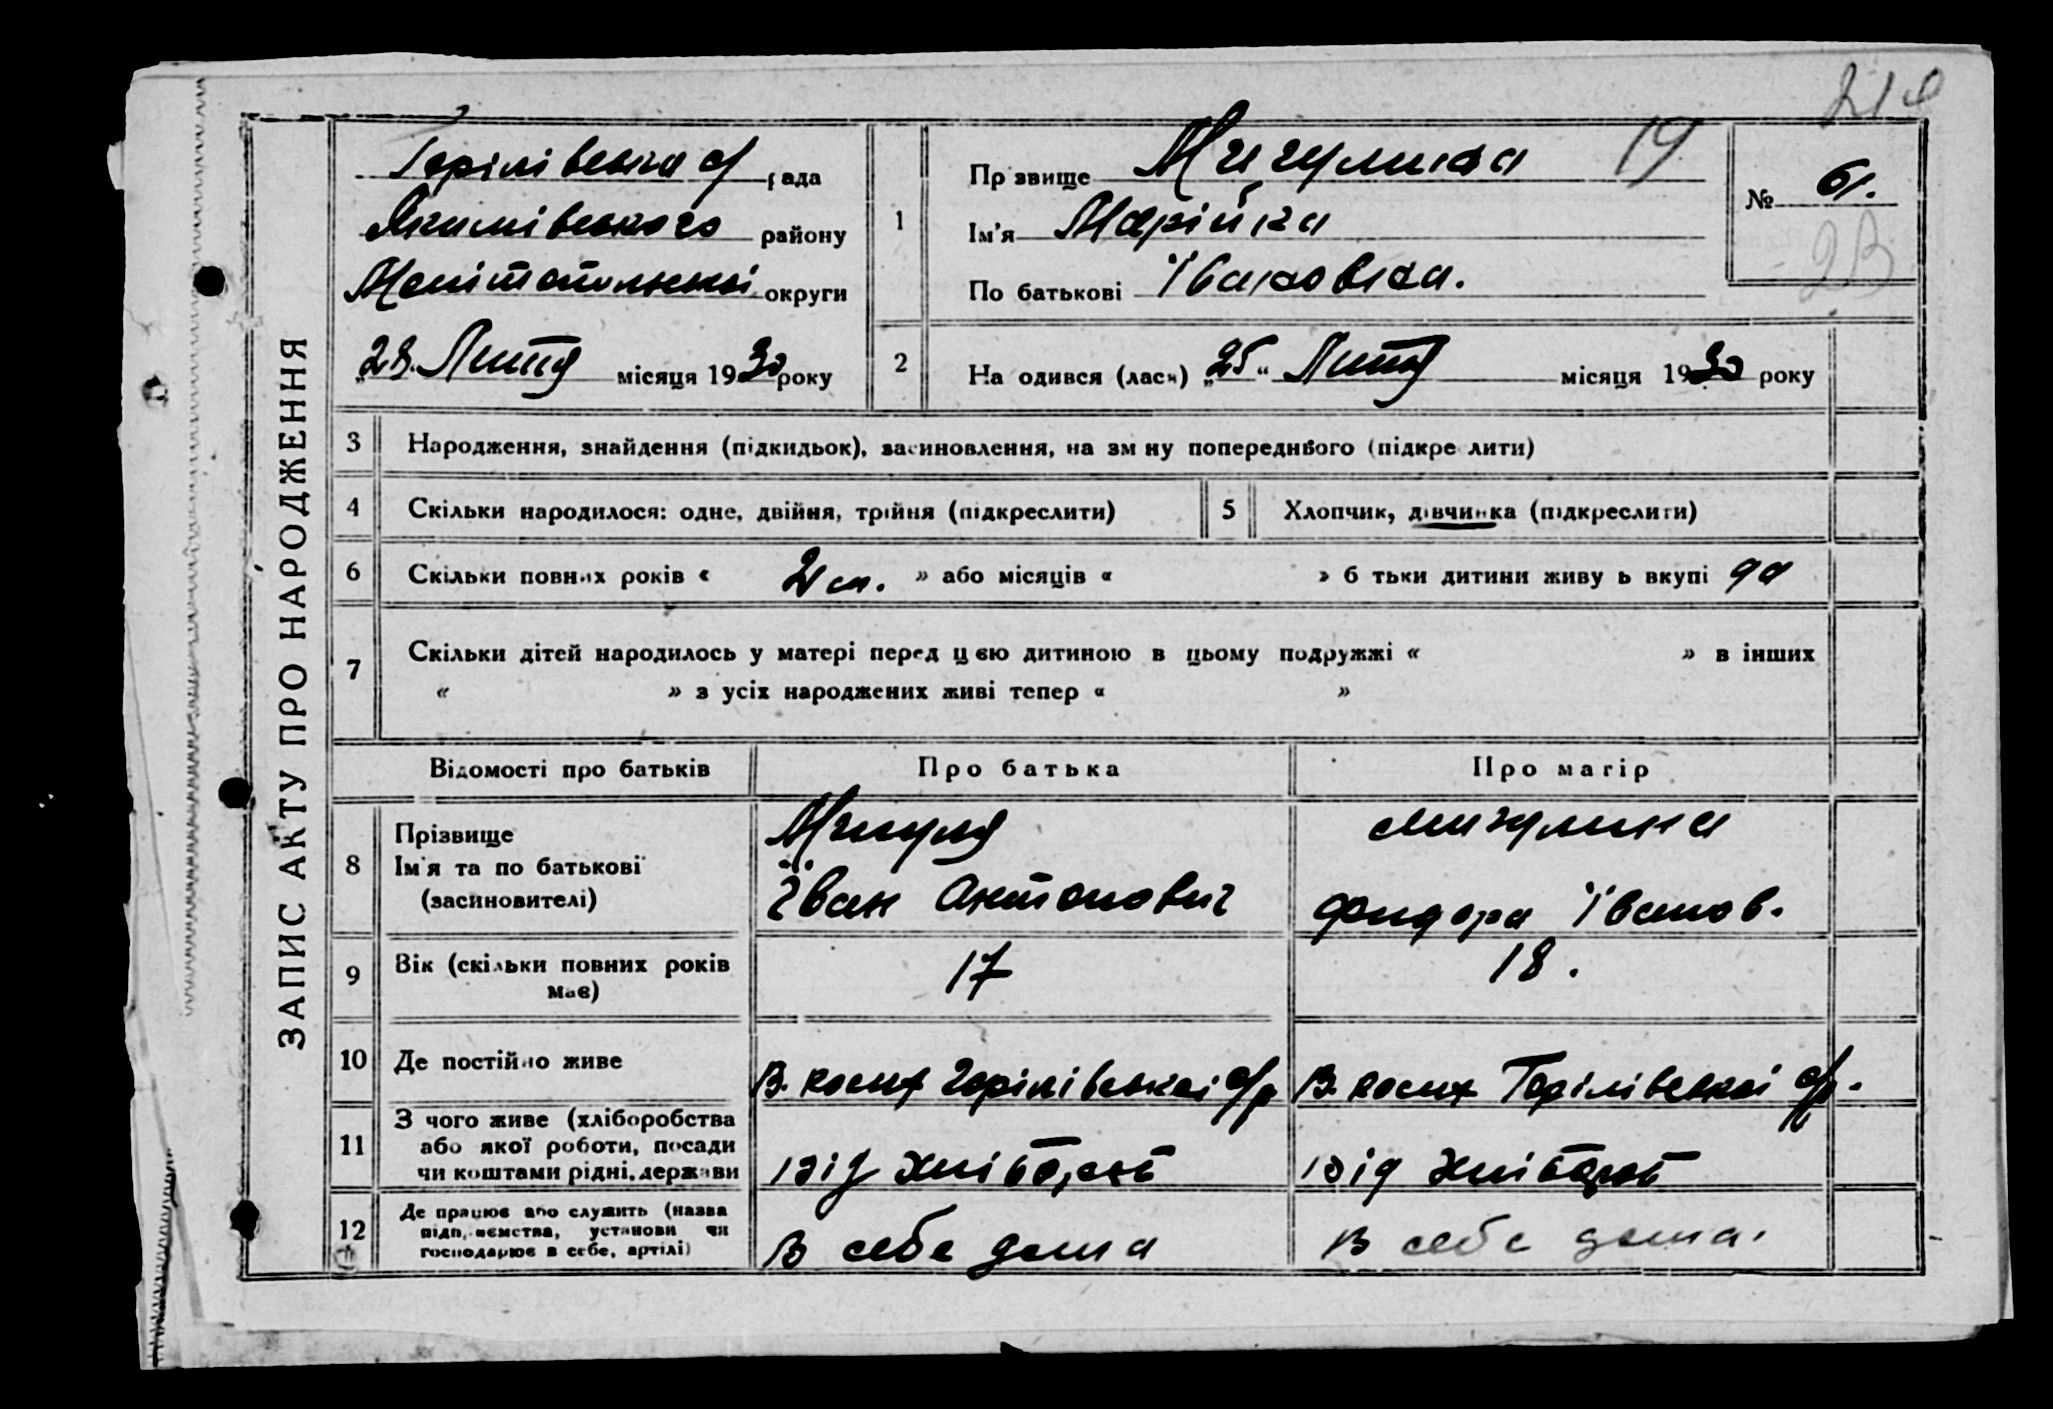 ЗАПИС АКТУ ПРО НАРОДЖЕННЯ
Горілівська с/ рада
Якимівського району
Мелітопольської округи
„28. Лютд місяця 1930 року
1 Прізвище Мигулина 19
Ім'я Марійка
По батькові Івановна.
№ 61.
2 На одився (лась) „25“ Лютд місяця 1930 року
3 Народження, знайдення (підкидьок), засиновлення, на зм ну попереднього (підкре лити)
4 Скільки народилося: одне, двійня, трійня (підкреслити)
5 Хлопчик, дівчинка (підкреслити)
6 Скільки повних років « » або місяців « » б тьки дитини живу ь вкупі да
7 Скільки дітей народилось у матері перед цією дитиною в цьому подружжі « » в інших
« » з усіх народжених живі тепер « »
Відомості про батьків Про батька Про матір
8 Прізвище
Ім'я та по батькові
(засиновителі)
Мигуля
Іван Антонович
Мигулина
Фидора Іванов.
9 Вік (скільки повних років
має)
17
18.
10 Де постійно живе
В. Косих Горілівської с/р
В. Косих Горілівської с/р.
11 З чого живе (хліборобства
або якої роботи, посади
чи коштами рідні, держави
від хлібороб
від хлібороб
12 Де працює або служить (назва
підп, иємства, установи чи
господарює в себе, артілі)
В себе дома
В себе дома.